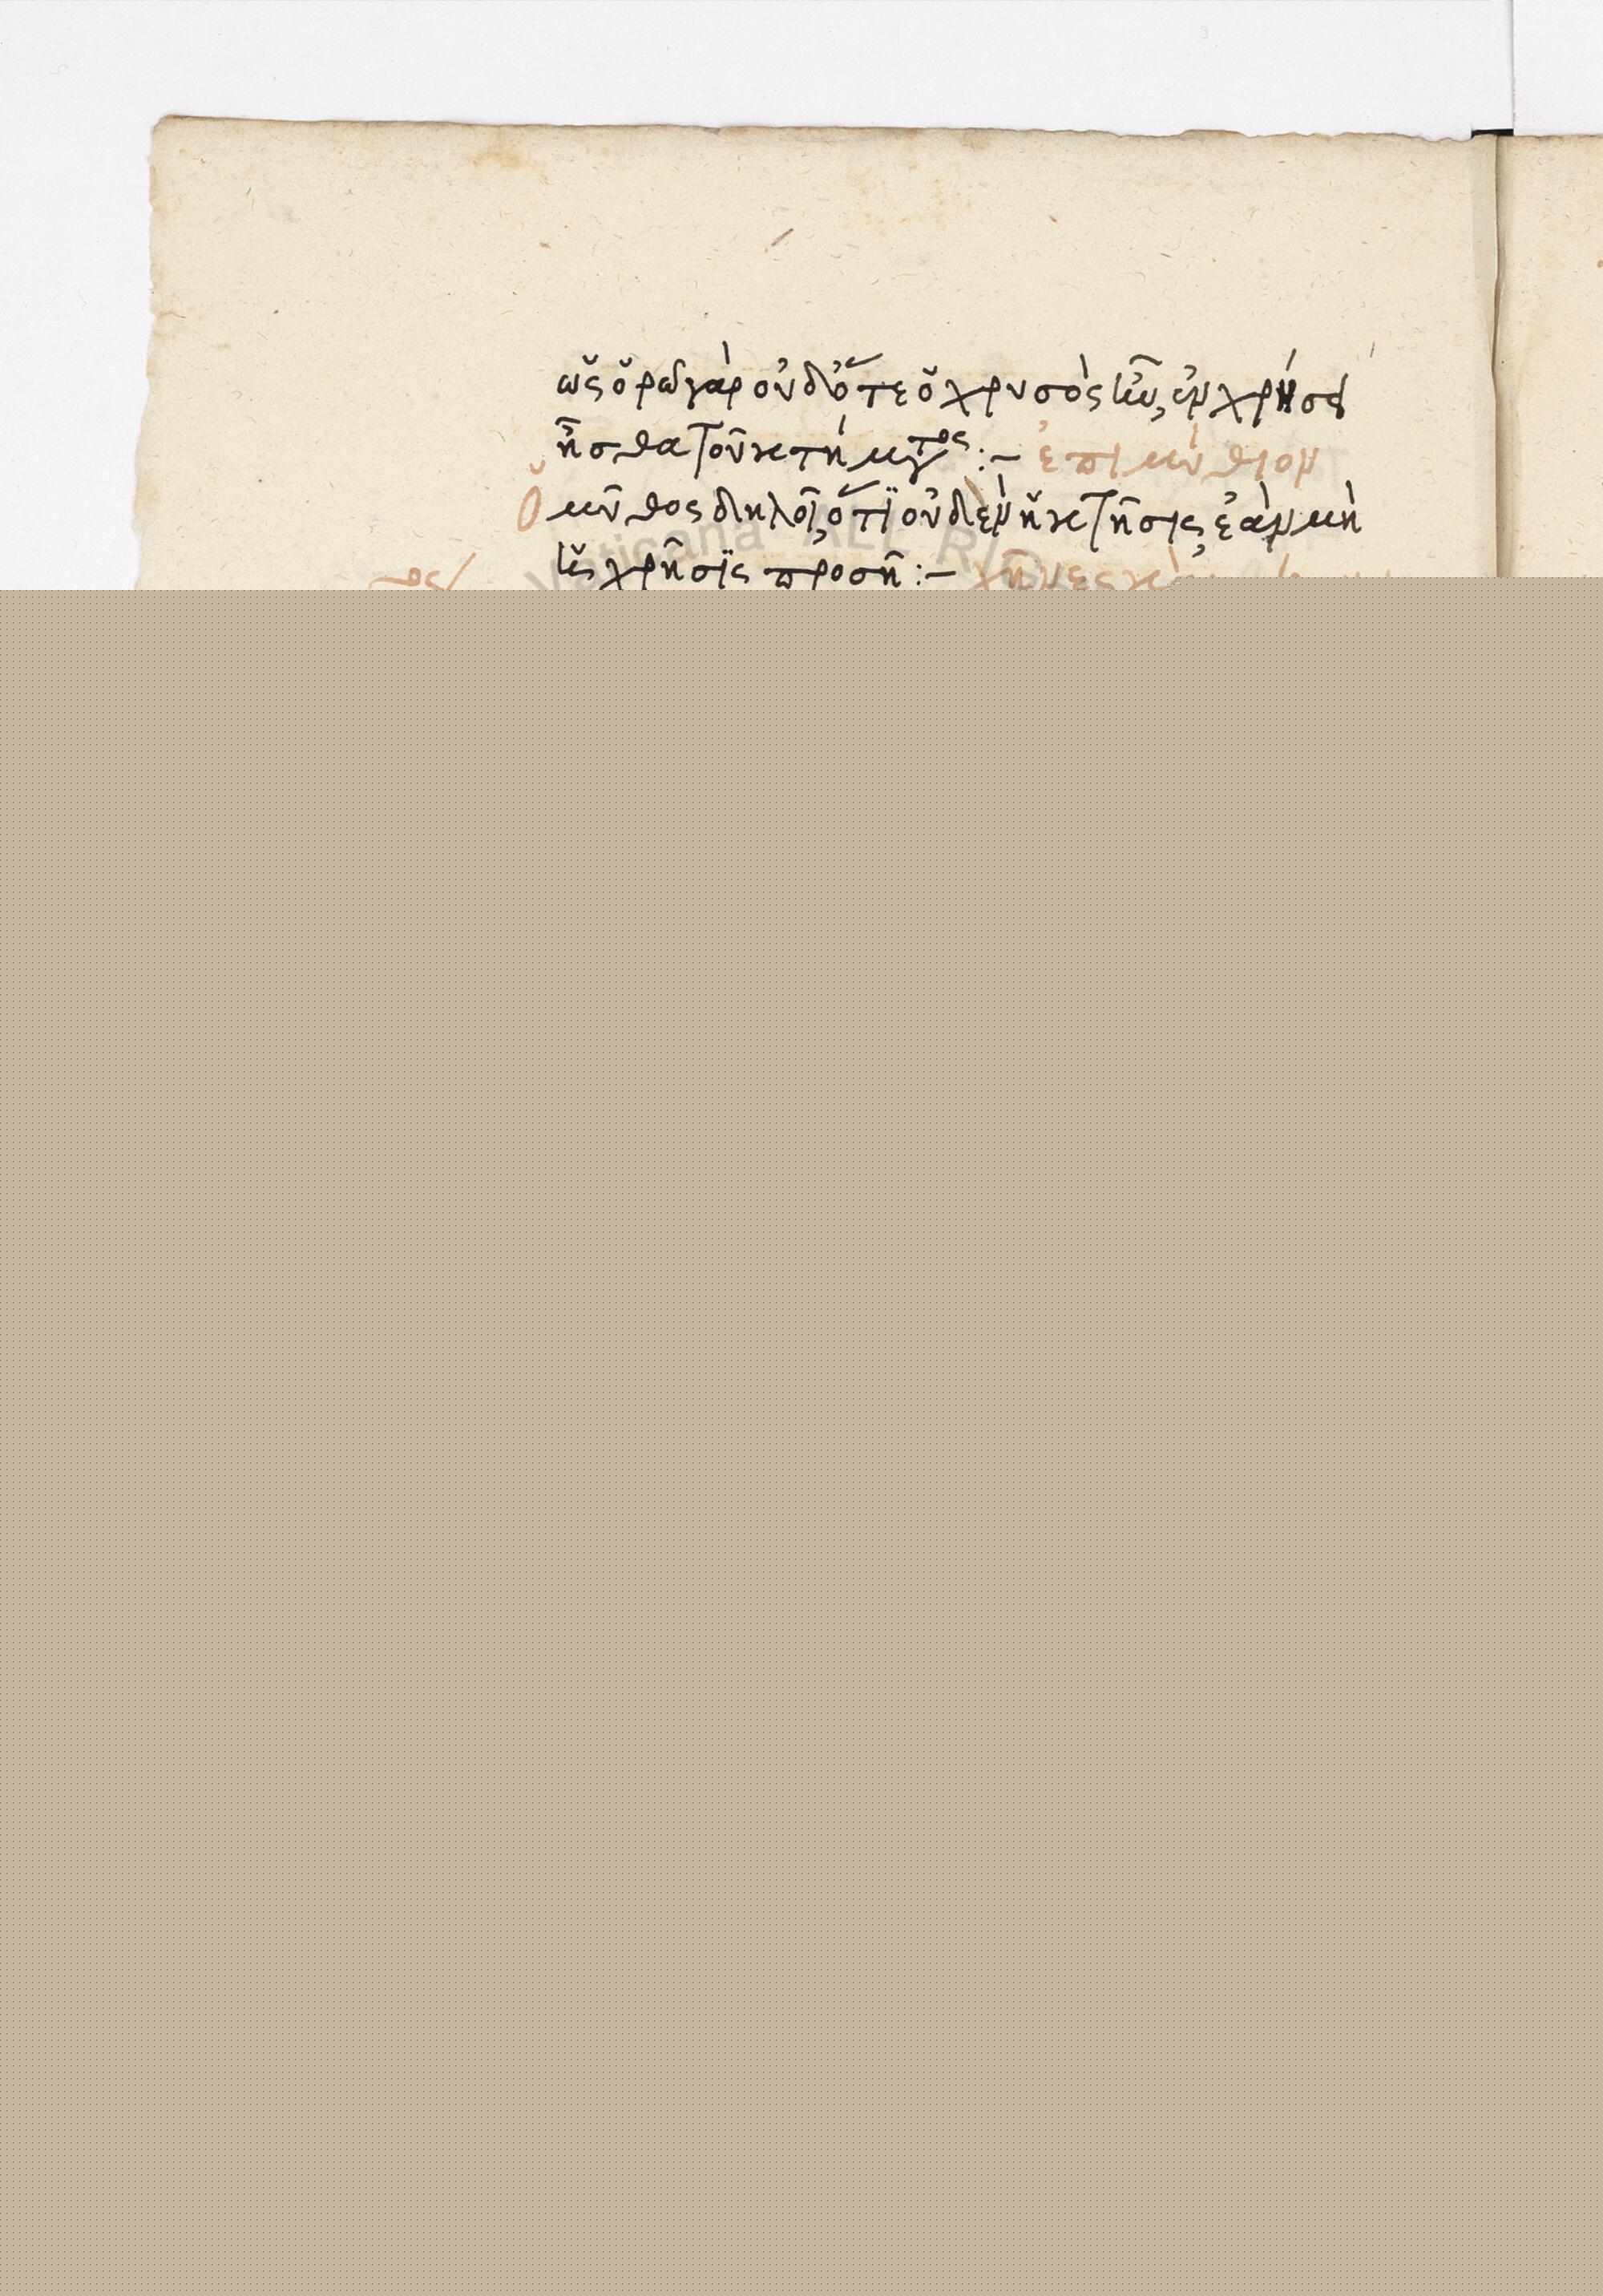 ὡς ὁρῶ γὰρ οὐδ' ὅτε ὁ χρυσὸς ἦν, ἐν χρήσει
ἦσθα τοῦ κτήματος :– ἐπιμύθιον
Ὁ μῦθος δηλοῖ, ὅτι οὐδὲν ἡ κτῆσις, ἐὰν μὴ
ἡ χρῆσις προσῇ :– χῆνες